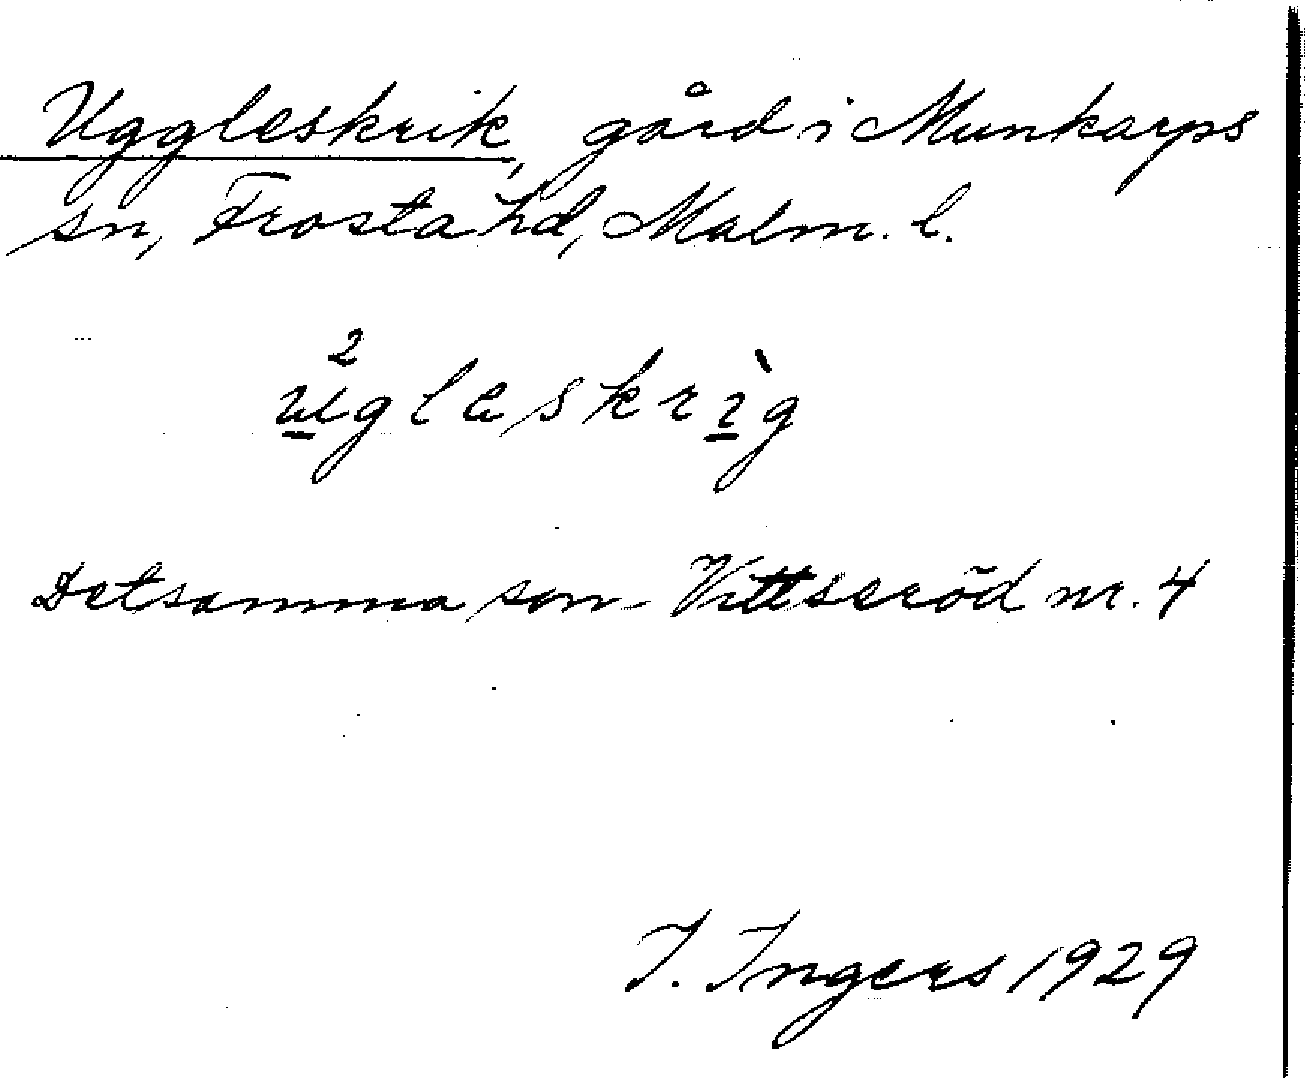 Uggleskrik, gård i Munkarps
sn, Frosta hd, Malm. l.
ú²gleskrìg
Detsamma som Vittseröd nr. 4
I. Ingers 1929